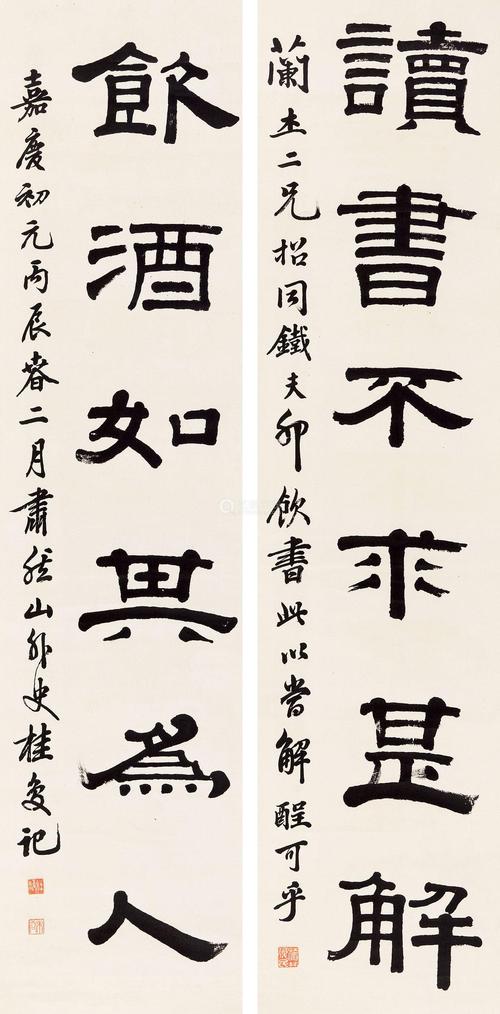 讀書不求甚解
蘭二兄招同鐵夫卯飲書此以當解酲可乎
飲酒如其為人
嘉慶初元丙辰春二月肅然山外史桂复記